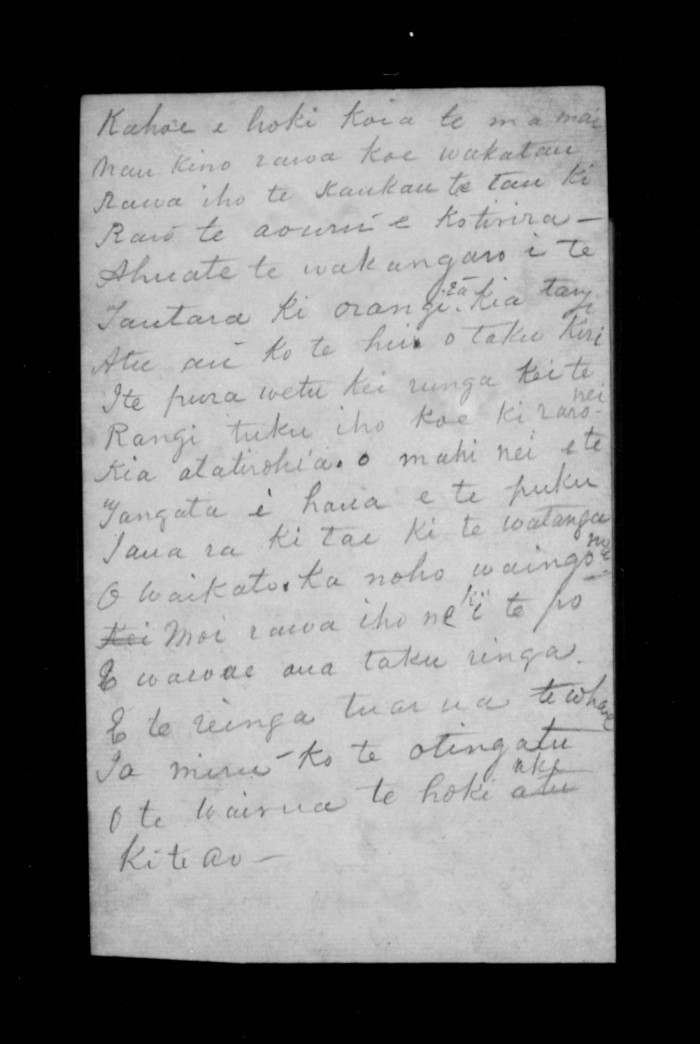 Kahoe e hoki koia te ma mai
nau kino rawa koe wakatau
Rawa iho te kaukau te tau ki
Raro te aouru e kotirira —
Ahuate te wakangaro i te
Tautara ki orangi. ra kia tangi
Atu au ko te hui o taku kiri
Ite pura wetu kei runga kei te
Rangi tuku iho koe ki raro nei
Kia atatirohia. o mahi nei e te
Tangata i haua e te puku
Taua ra ki tae ki te watanga
O Waikato. Ka noho waingo me
Kei Moi rawa iho nei kii te po
E wawae aua taku ringa.
E te reinga tuarua te whare
Ta miru - ko te otingatu
O te Wairua te hoki atu ake
Ki te ao —